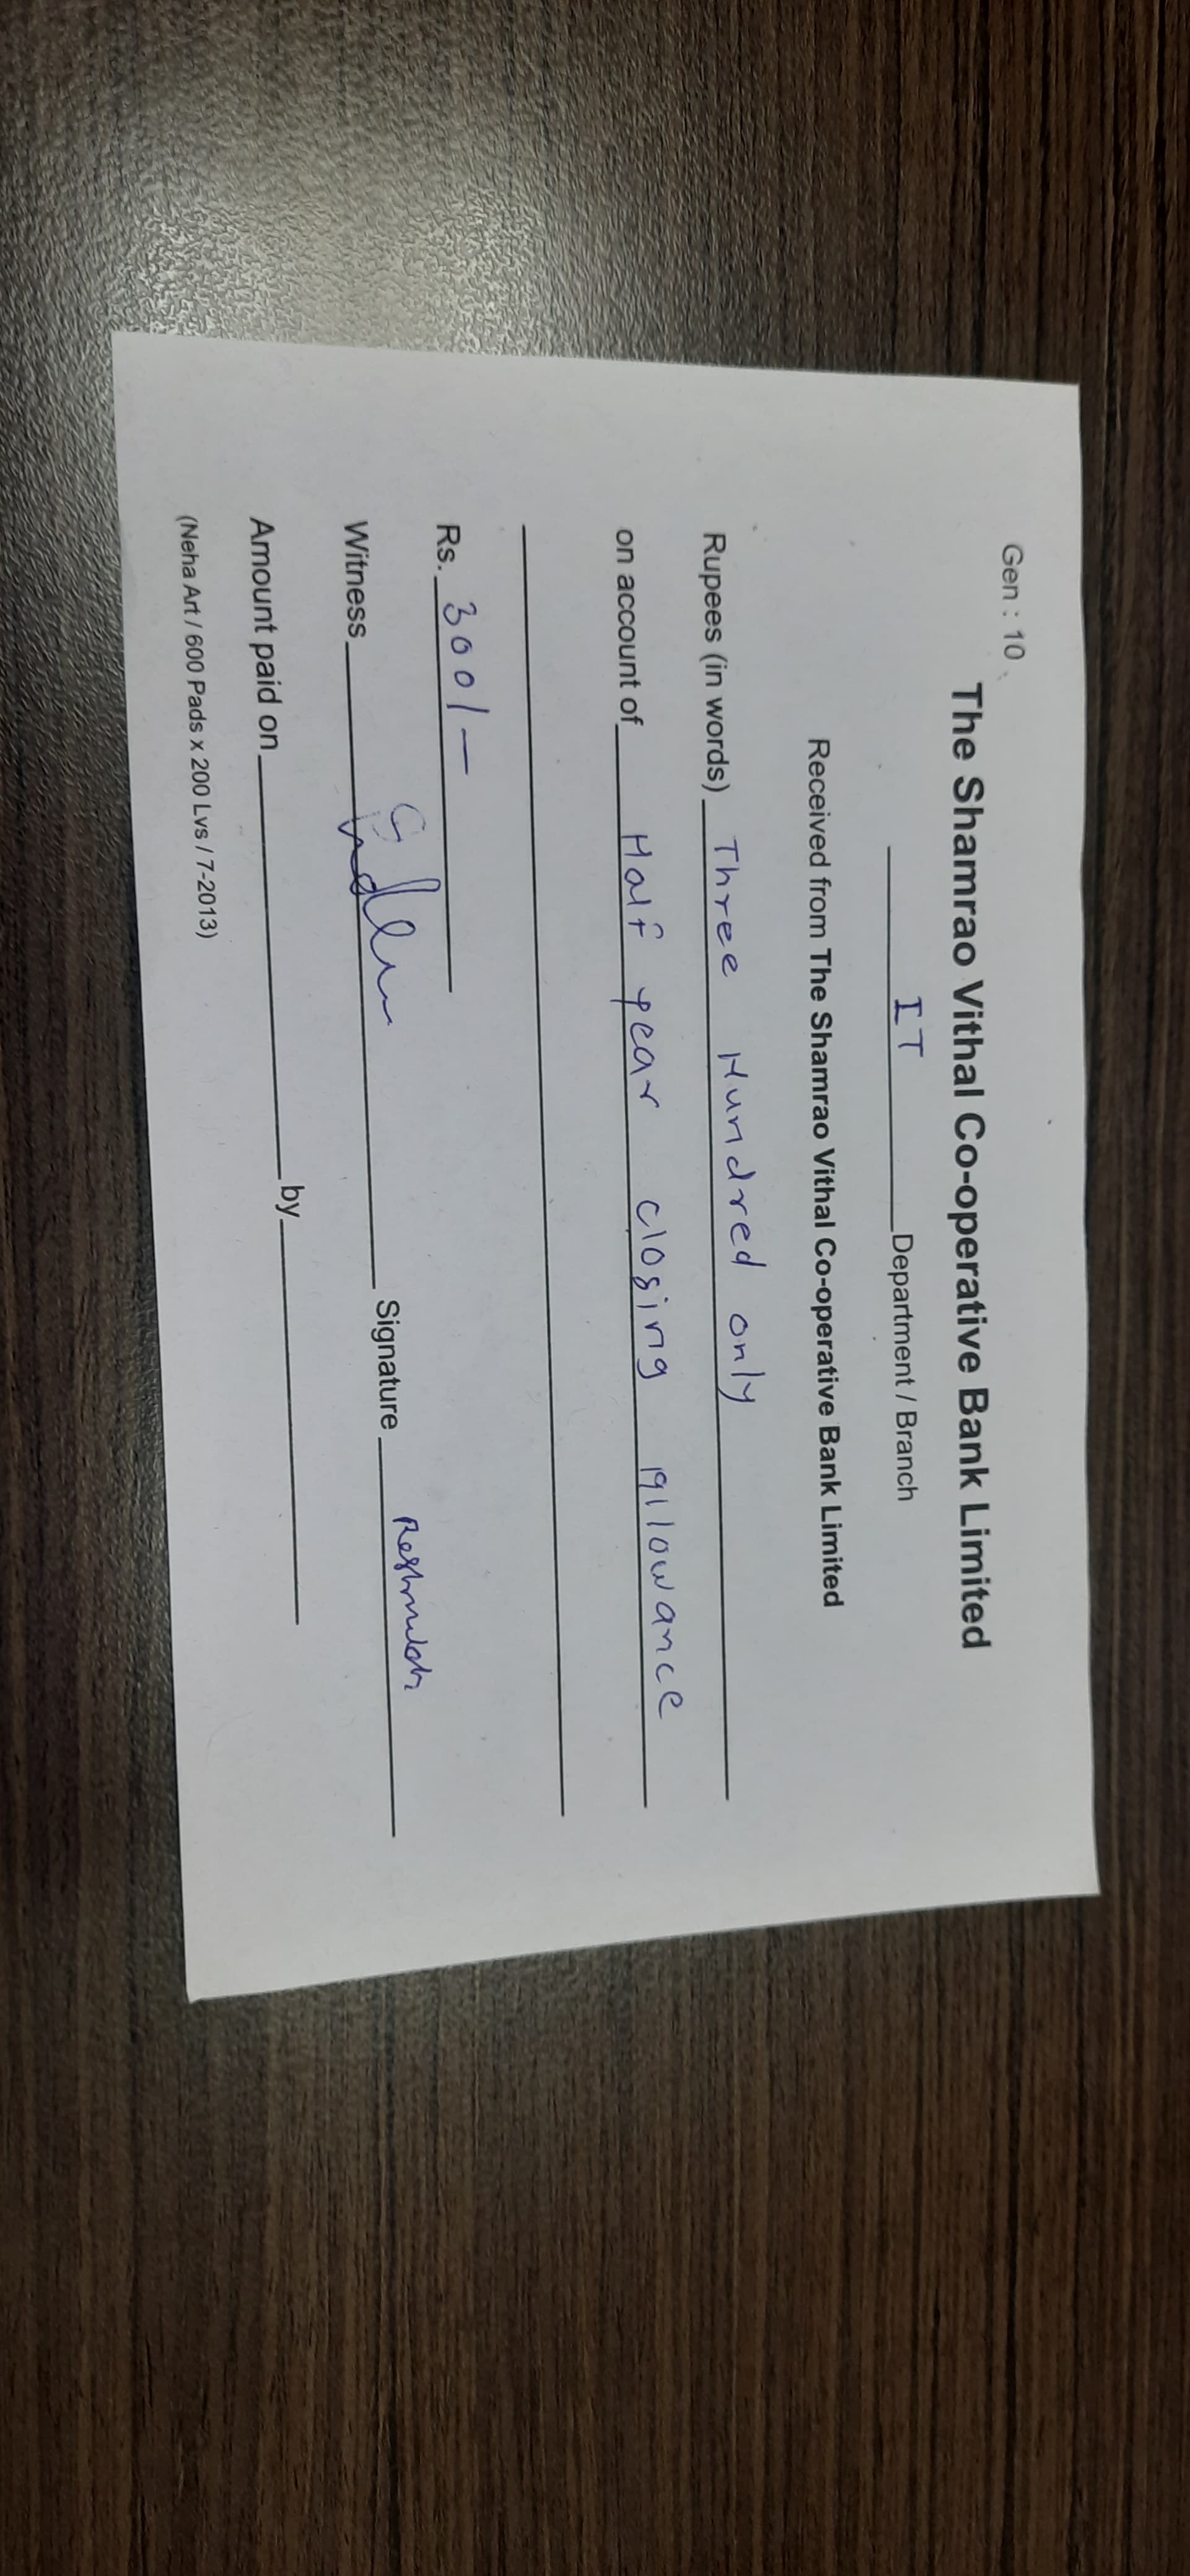 Gen : 10
The Shamrao Vithal Co-operative Bank Limited
IT Department / Branch
Received from The Shamrao Vithal Co-operative Bank Limited
Rupees (in words) Three Hundred only
on account of Half year closing Allowance
Rs. 300/-
Witness Signature
Amount paid on by
(Neha Art / 600 Pads x 200 Lvs / 7-2013)